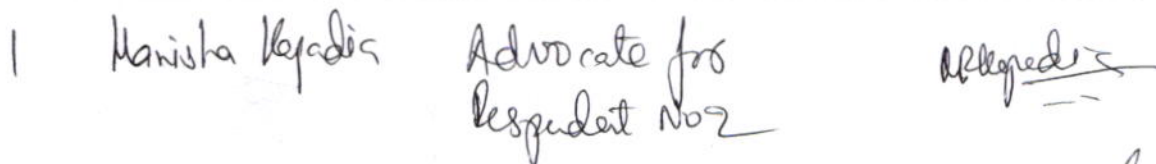 1 Manisha Kejadia Advocate for
Respondent No 2